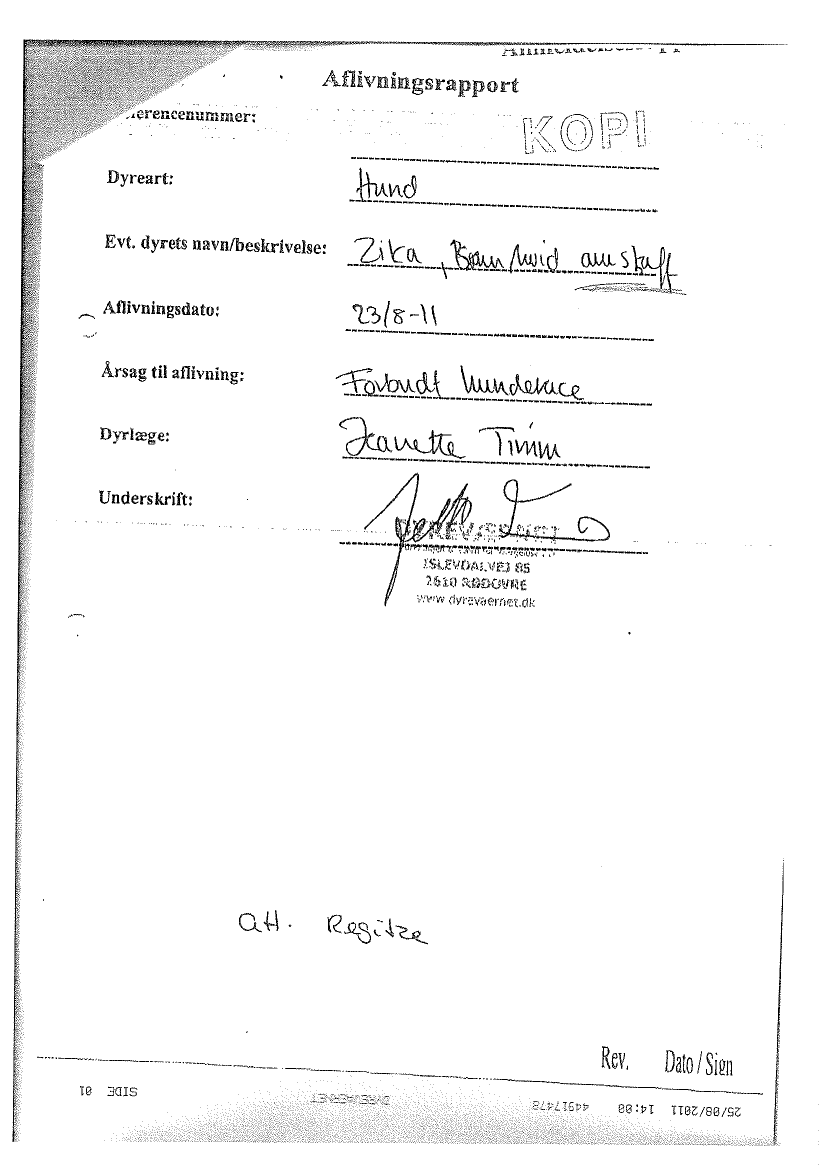 Aflivningsrapport
erencenummer:
KOPI
Dyreart: Hund
Evt. dyrets navn/beskrivelse: Zika, Brun/hvid amstaff
Aflivningsdato: 23/8-11
Årsag til aflivning: Forbudt hunderace
Dyrlæge: Jeanette Timm
Underskrift:
DYREVÆRNET
ISLEVDALVEJ 85
2610 RØDOVRE
www.dyrevaernet.dk
att. Regitze
Rev. Dato/Sign
25/08/2011 14:00 44917478 DYREVAERNET SIDE 01